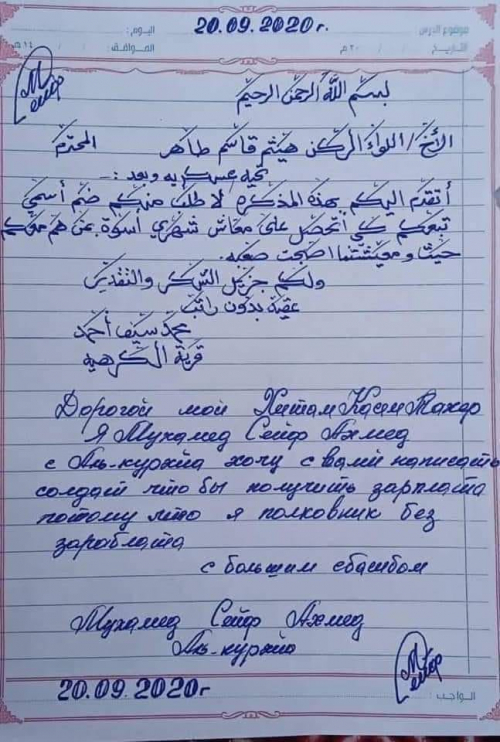 موضوع الدرس :
اليوم :
20.09.2020г.
التاريخ / / ٢٠ م
الموافق : / / ١٤ هـ
بسم الله الرحمن الرحيم
الأخ/ اللواء الركن هيثم قاسم طاهر المحترم
تحية عسكريه وبعد :-
أتقدم اليكم بهذه المذكرة لا طلب منكم ضم أسمي
تبعكم كي اتحصل على معاش شهري أسوة بمن هم معكم
حيث ومعيشتنا اصبحت صعبه.
ولكم جزيل الشكر والتقدير
عقيد بدون راتب
محمد سيف أحمد
قرية الكرهيه
Дорогой мой Хитам Касим Тахар
Я Мухамед Сейф Ахмед
с Аль-курхйа хочу с вами написать
солдат что бы получить зарплата
потому что я полковник без
зараблата
с большим сбасибом
Мухамед Сейф Ахмед
Аль-курхйа
20.09.2020г
الواجب :